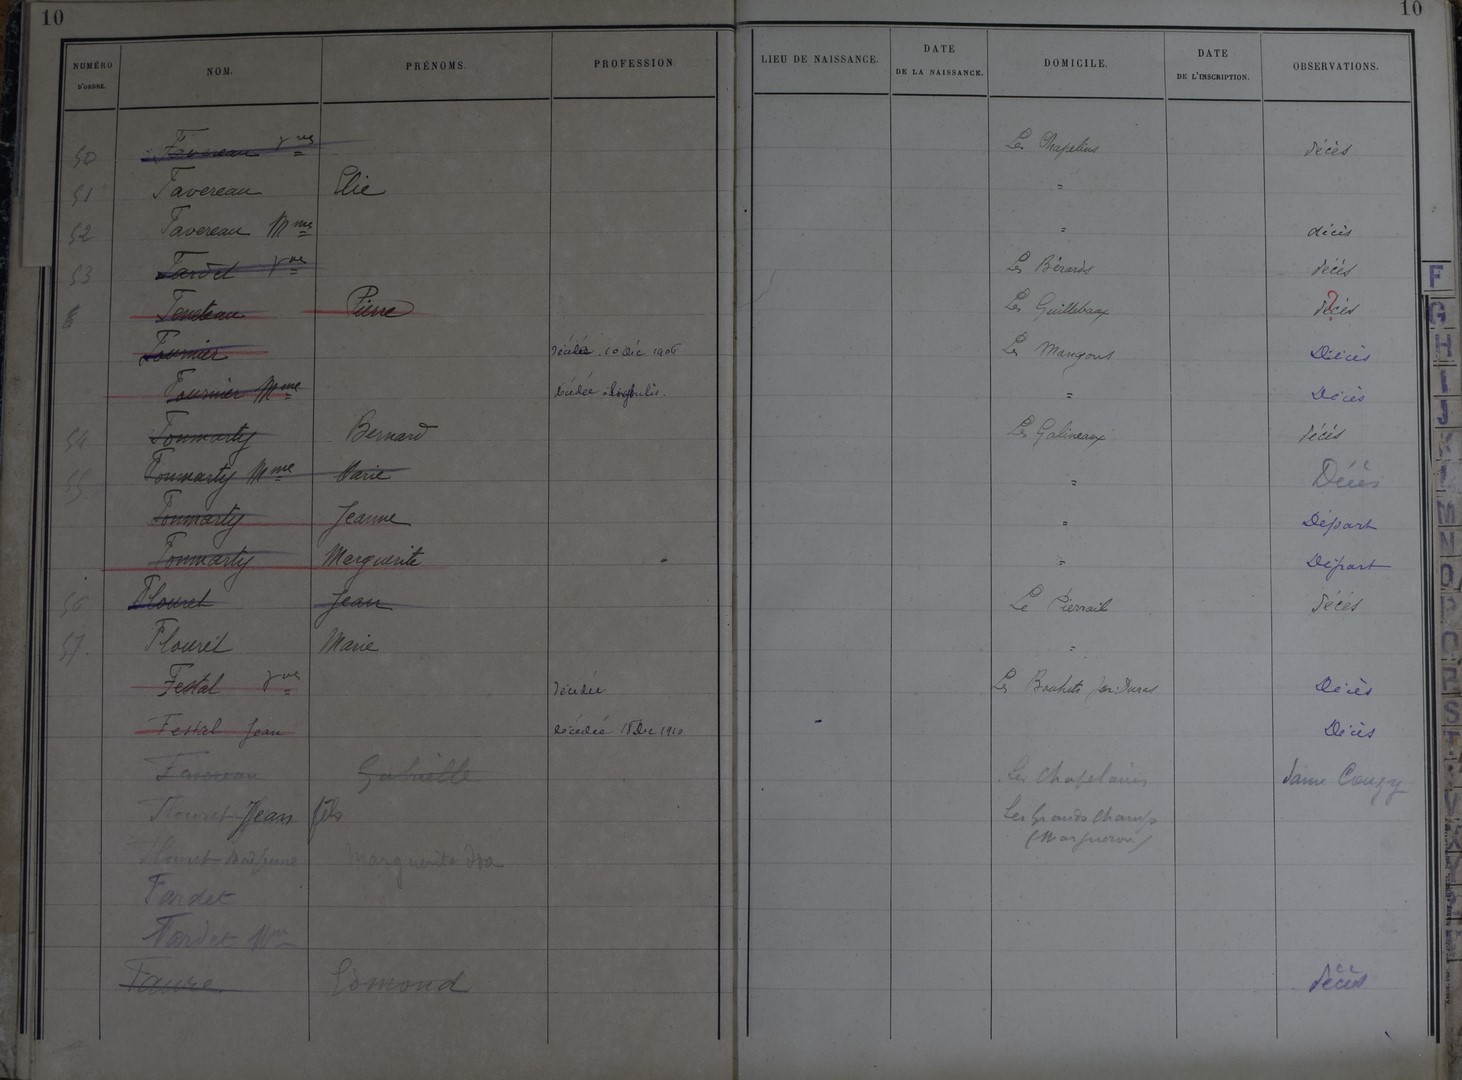 10
10
NUMÉRO D'ORDRE. NOM. PRÉNOMS. PROFESSION LIEU DE NAISSANCE. DATE DE LA NAISSANCE. DOMICILE. DATE DE L'INSCRIPTION. OBSERVATIONS.
50 Favereau Vve Les Chapelins décès
51 Favereau Elie "
52 Favereau Mme " décès
53 Fardet Vve Les Bérards décès
Feneteau Pierre Les Guillebaux décès ?
Fournier décédé 10 Déc 1906 Les Mangons Décès
Fournier Mme décédée " Décès
54 Fonmarty Bernard Les Galineaux décès
55 Fonmarty Mme Marie " Décès
Fonmarty Jeanne " Départ
Fonmarty Marguerite " Départ
56 Flouret Jean Le Pierrail décès
57. Flouret Marie "
Festal Vve décédée Les Bouhets Décès
Festal Jean décédé Déc 1910 Décès
Favereau Gabrielle Les Chapelains dame Cougy
Flouret Jean fils Les Grands Champs
(Margueron)
Flouret Marguerite
Fardet
Fardet Mme
Faure Edmond décès
F
G
H
I
J
K
L
M
N
O
P
Q
R
S
T